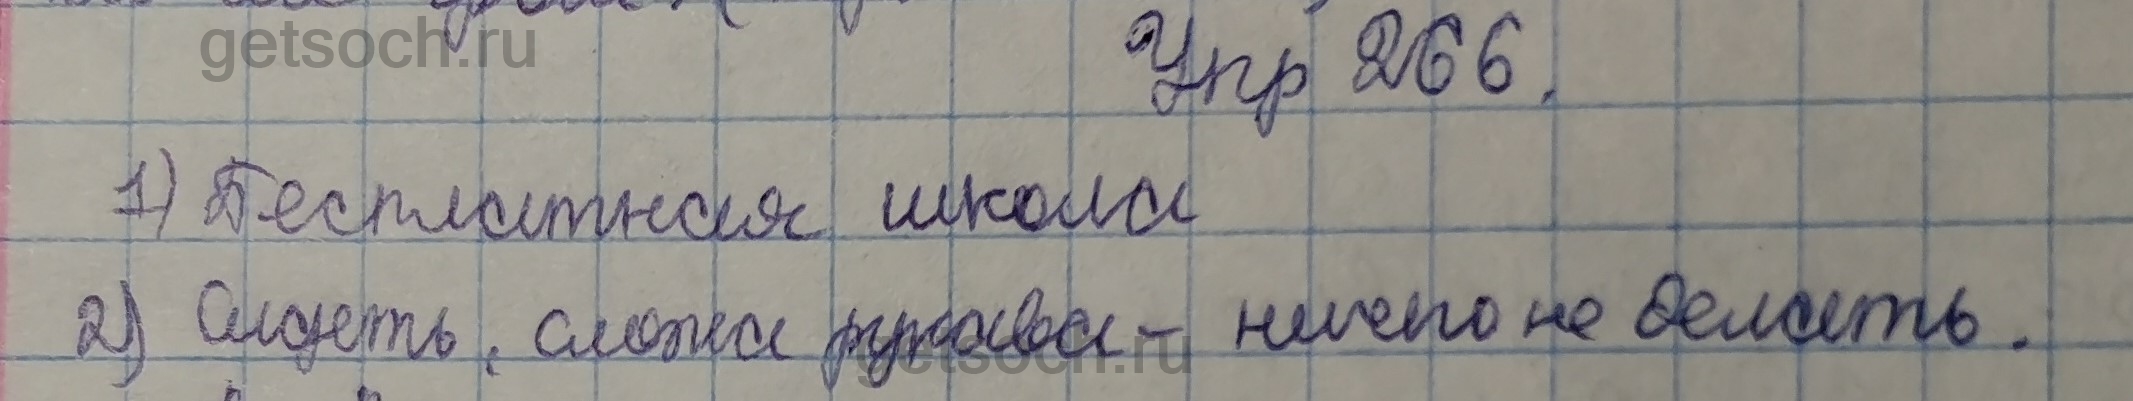 getsoch.ru
Упр 266.
1) Бесплатная школа
2) Сидеть, сложа рукава - ничего не делать.
getsoch.ru